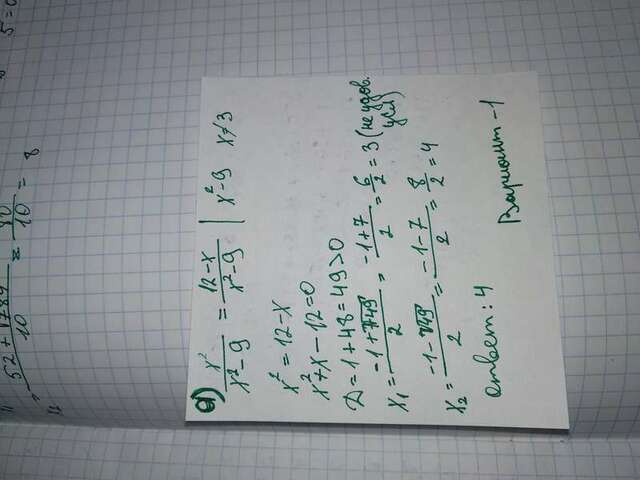 x₂ = (52 + √784)/10 = 80/10 = 8
5 =
а) x²/(x² - 9) = (12 - x)/(x² - 9) | x² - 9 x ≠ 3
x² = 12 - x
x² + x - 12 = 0
Д = 1 + 48 = 49 > 0
x₁ = (-1 + √49)/2 = (-1 + 7)/2 = 6/2 = 3 (не удов. усл)
x₂ = (-1 - √49)/2 = (-1 - 7)/2 = 8/2 = 4
ответ: 4
Вариант - 1